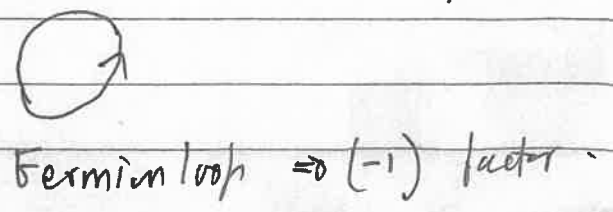 Fermion loop ⇒ (-1) factor.